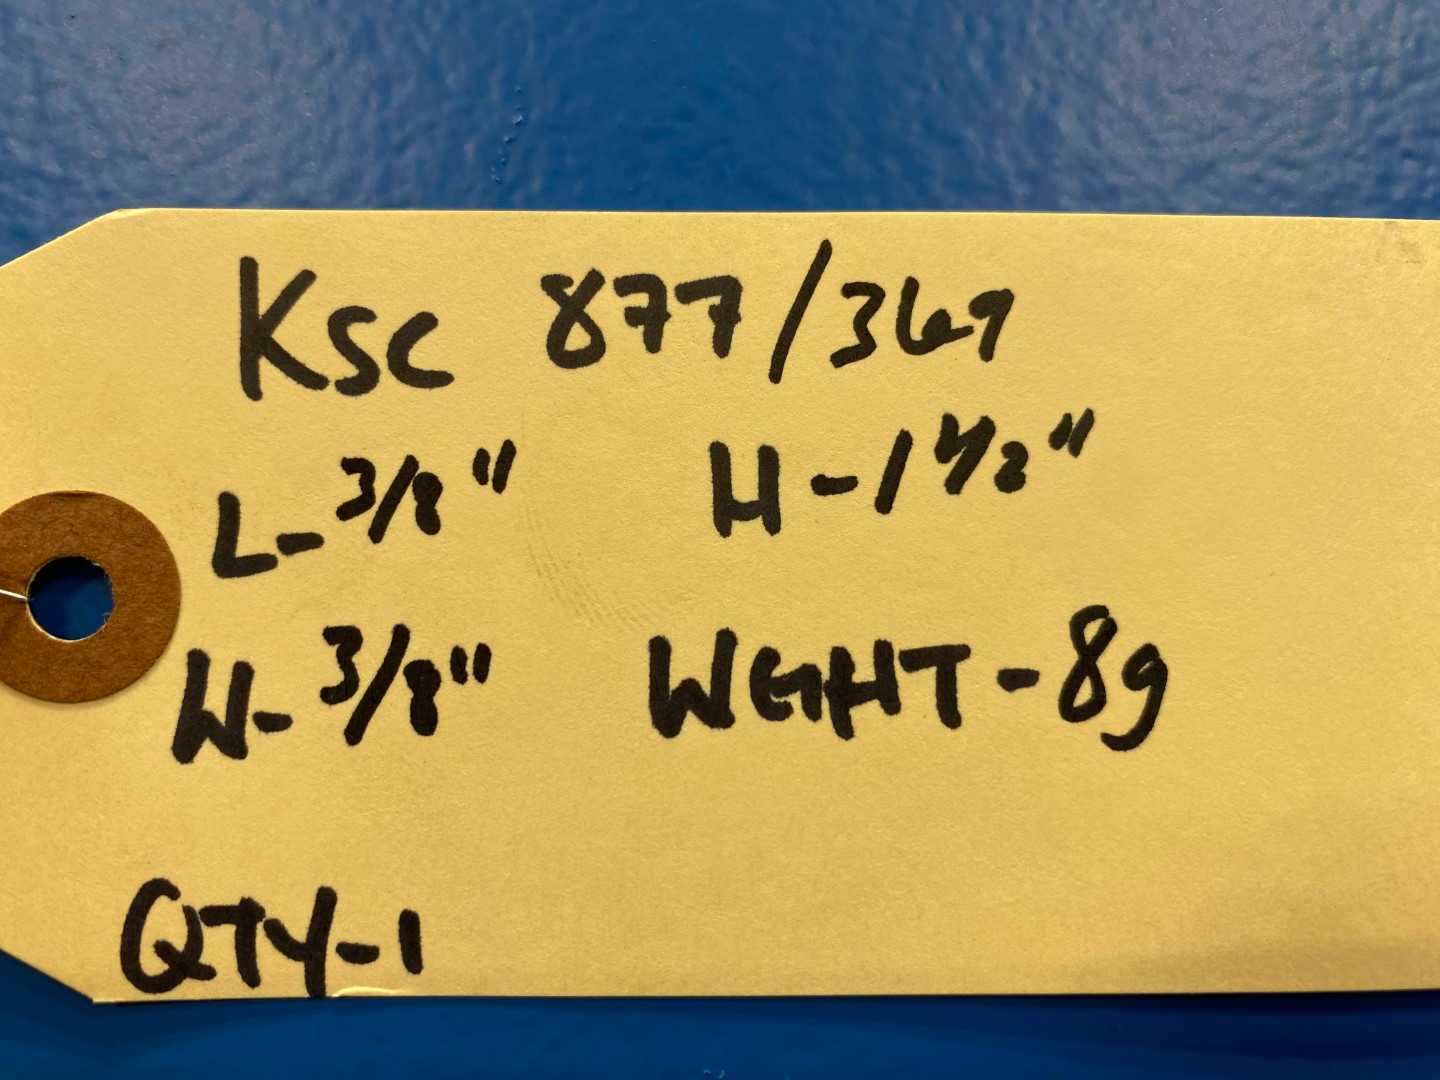 KSC 877/369
L-3/8" H-1 1/2"
W-3/8" WEGHT-8g
QTY-1